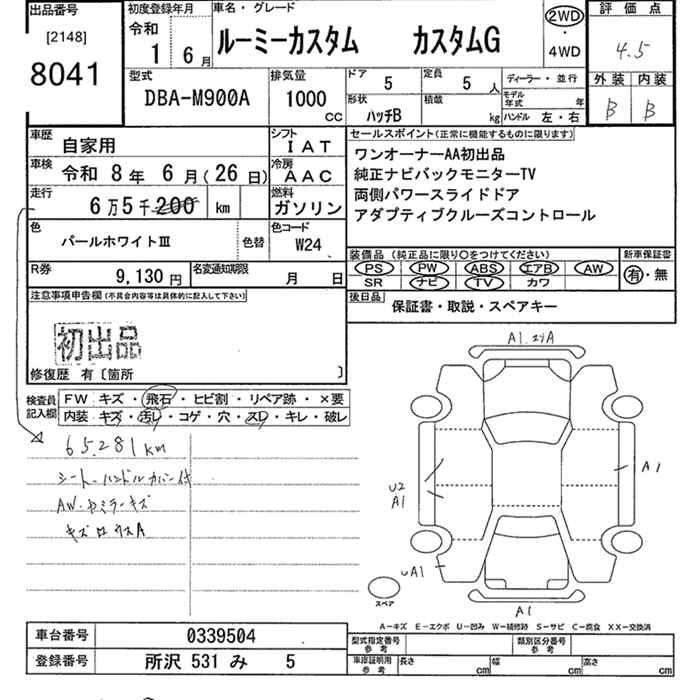 出品番号
[2148]
8041
初度登録年月
令和
1 6月
車名・グレード
ルーミーカスタム カスタムG
2WD
・
4WD
評価点
4.5
外装 内装
B B
型式
DBA-M900A
排気量
1000
CC
ドア
5
定員
5 人
形状
ハッチB
積載
kg
ディーラー・並行
モデル年式 年
ハンドル 左・右
車歴
自家用
シフト
I A T
車検
令和 8年 6月(26日)
冷房
A A C
走行
6万5千200 km
燃料
ガソリン
色
パールホワイトⅢ
色替
色コード
W24
R券
9,130円
名変通知期限
月 日
セールスポイント(正常に機能するものに限ります)
ワンオーナーAA初出品
純正ナビバックモニターTV
両側パワースライドドア
アダプティブクルーズコントロール
装備品(純正品に限り〇をつけてください)
PS PW ABS エアB AW
SR ナビ TV カワ
新車保証書
有・無
後日品
保証書・取説・スペアキー
注意事項申告欄(不具合内容等は具体的に記入して下さい)
初出品
修復歴 有〔箇所 〕
検査員
記入欄
FW キズ・飛石・ヒビ割・リペア跡・×要
内装 キズ・汚レ・コゲ・穴・スレ・キレ・破レ
65.281km
シート.ハンドルカバー付
AW.
キズ
A1.
A1
U2
A1
UA1
A1
スペア
A−キズ E−エクボ U−凹み W−補修跡 S−サビ C−腐食 XX−交換済
車台番号
0339504
登録番号
所沢 531 み 5
型式指定番号
参考
類別区分番号
参考
車庫証明用
参考
長さ cm
幅 cm
高さ cm